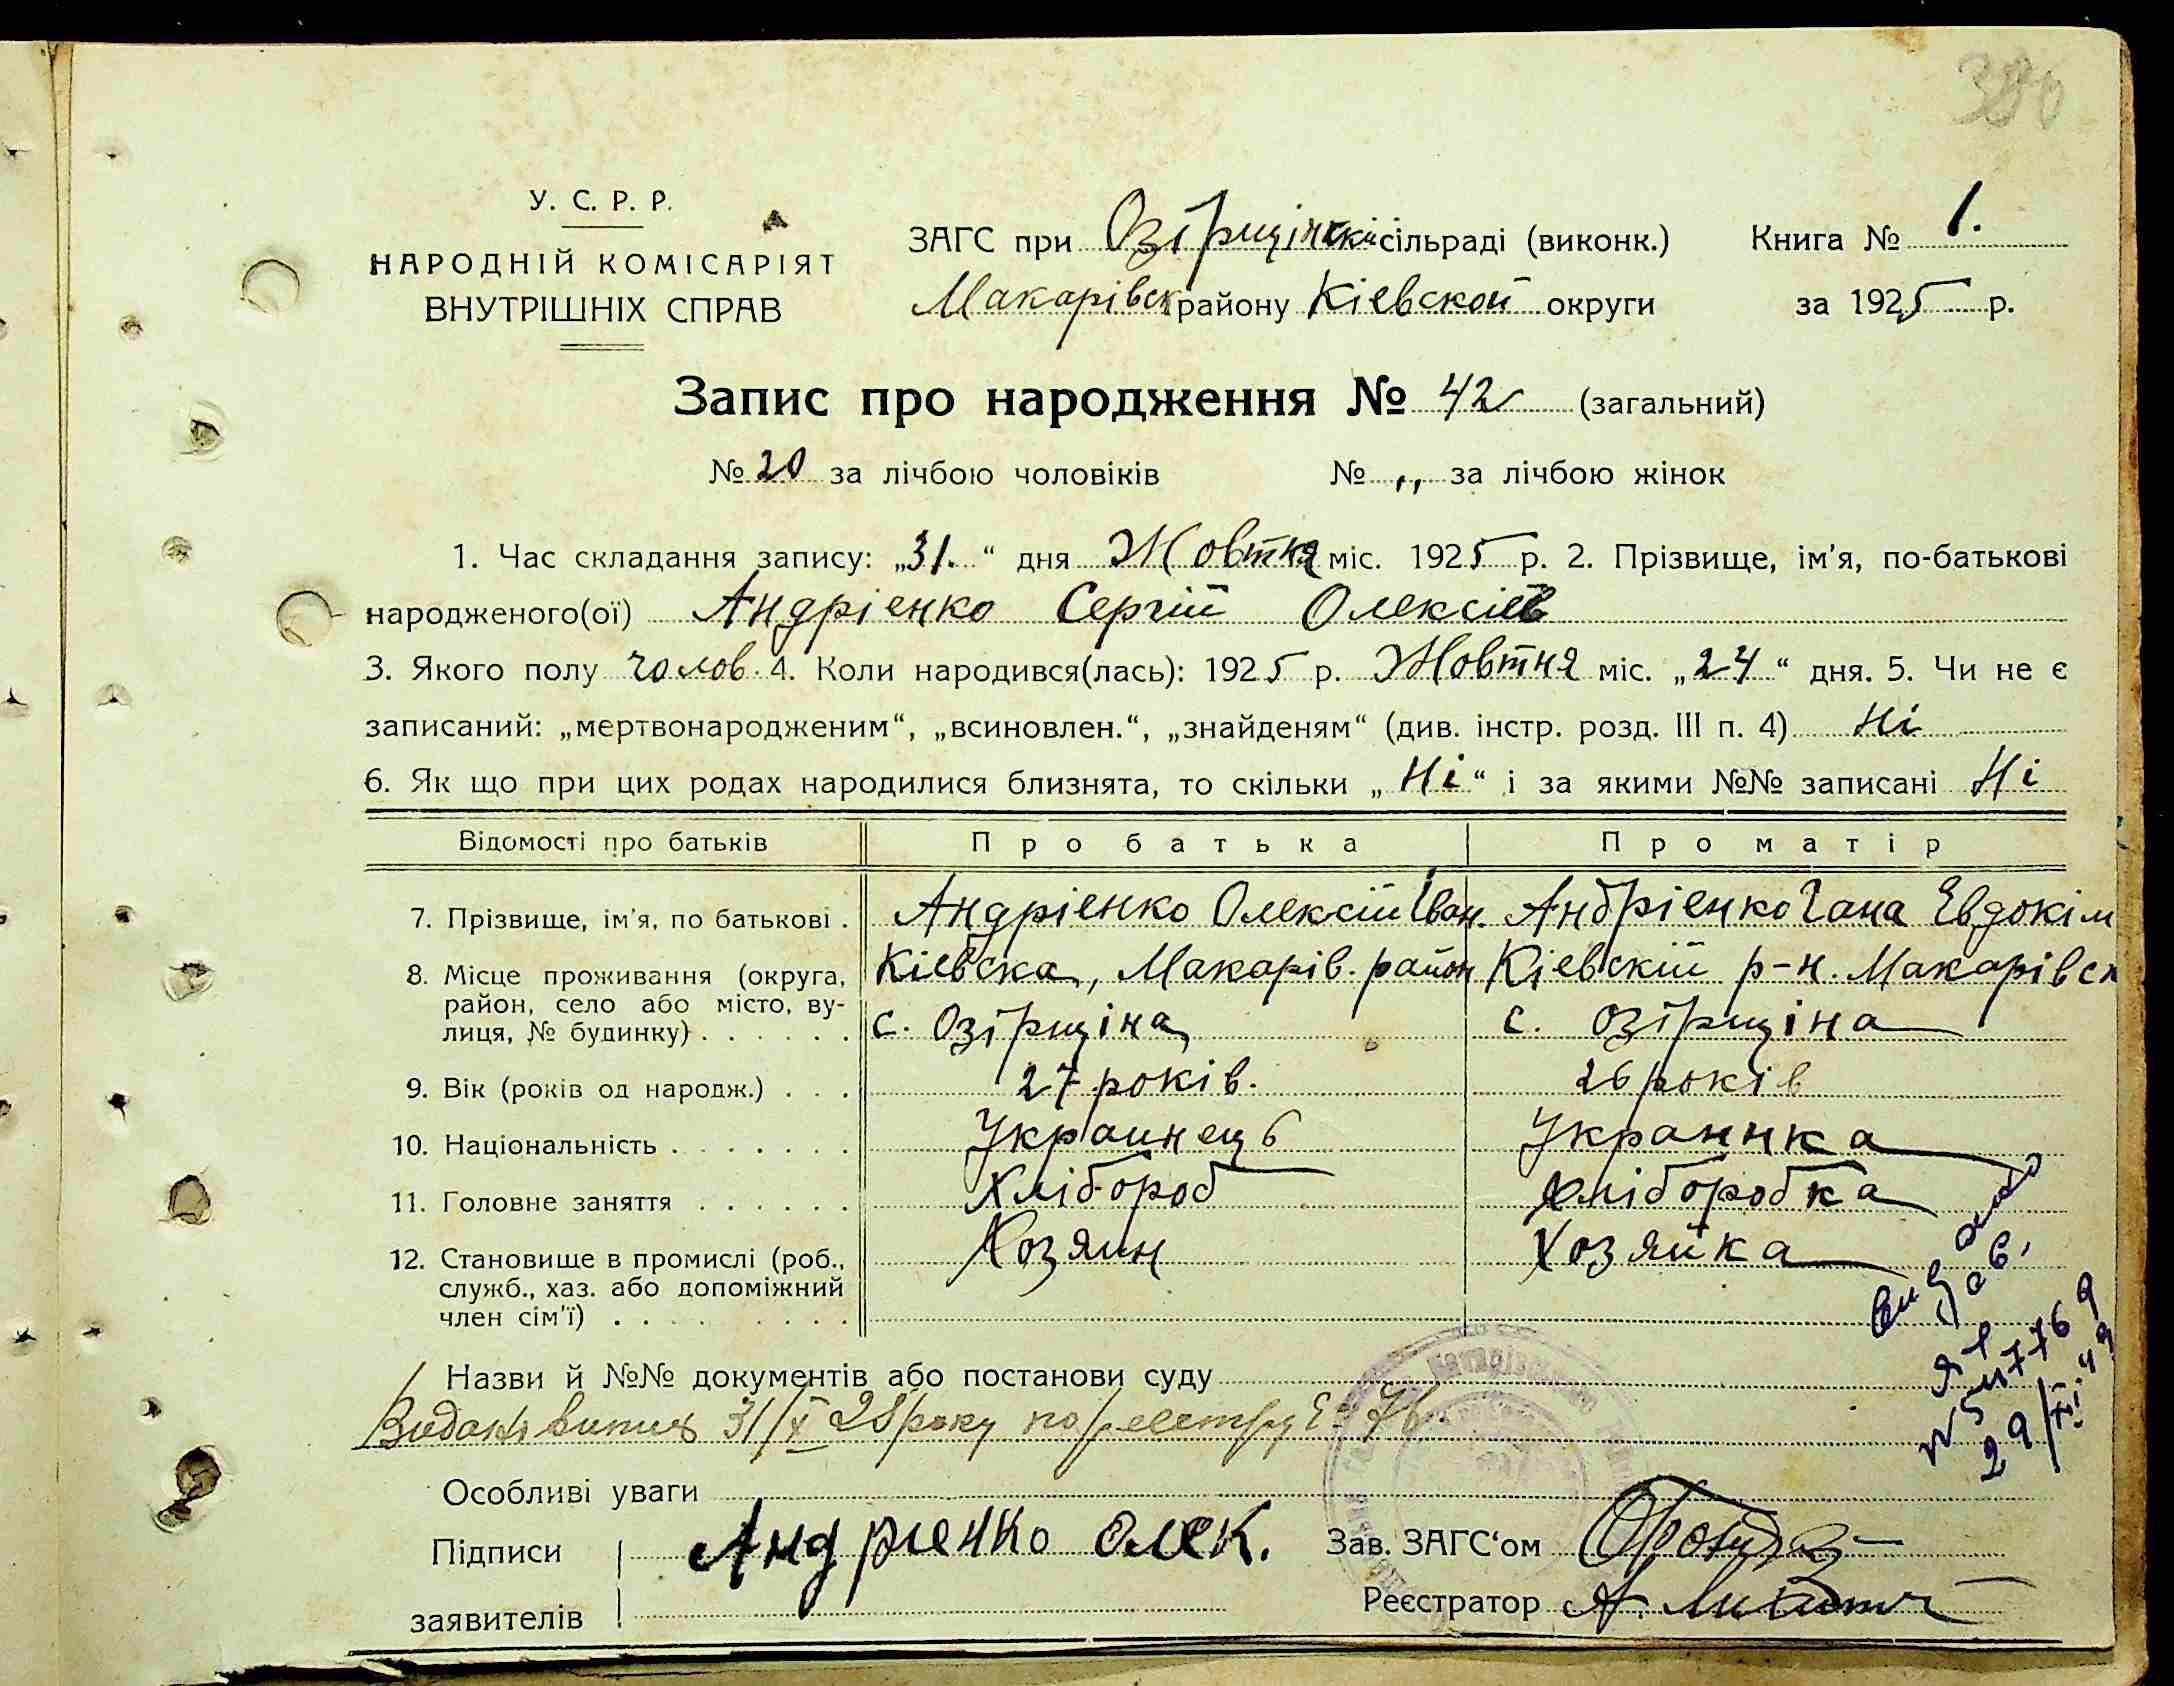 У. С. Р. Р.
НАРОДНІЙ КОМІСАРІЯТ
ВНУТРІШНІХ СПРАВ
ЗАГС при Озірщінській сільраді (виконк.) Книга № 1.
Макарівск району Кіевской округи за 1925 р.
Запис про народження № 42 (загальний)
№ 20 за лічбою чоловіків № „ за лічбою жінок
1. Час складання запису: „31.“ дня Жовтня міс. 1925 р. 2. Прізвище, ім'я, по-батькові
народженого(ої) Андріенко Сергій Олексіев
3. Якого полу чолов. 4. Коли народився(лась): 1925 р. Жовтня міс. „24“ дня. 5. Чи не є
записаний: „мертвонародженим“, „всиновлен.“, „знайденям“ (див. інстр. розд. III п. 4) Ні
6. Як що при цих родах народилися близнята, то скільки „Ні“ і за якими №№ записані Ні
Відомості про батьків Про батька Про матір
7. Прізвище, ім'я, по батькові . Андріенко Олексій Іван. Андріенко Гана Евдокім
8. Місце проживання (округа, район, село або місто, вулиця, № будинку) . . . . . . Кіевска, Макарів. район Кіевскій р-н. Макарівск
с. Озірщіна с. Озірщіна
9. Вік (років од народж.) . . . 27 років. 26 років
10. Національність . . . . . . . Украинець Украинка
11. Головне заняття . . . . . . Хлібороб хліборобка
12. Становище в промислі (роб., служб., хаз. або допоміжний член сім'ї) . . . . . . . . . Хозяин Хозяйка
Назви й №№ документів або постанови суду
Видан витяг 31/X 28 року по реестру
Особливі уваги
Підписи Андріенко Олек. Зав. ЗАГС'ом
заявителів Реєстратор А.
видано